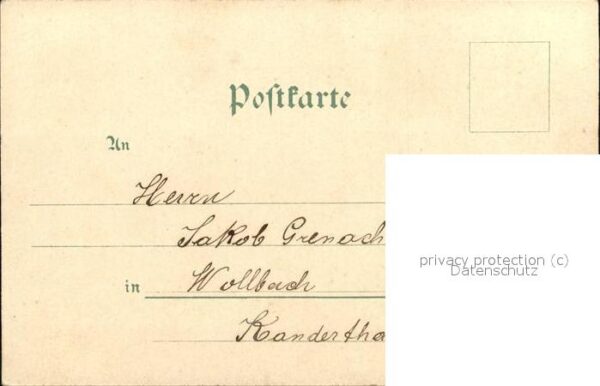 Postkarte
An
Herrn
Jakob Grenach
in Wollbach
Kandertha
privacy protection (c)
Datenschutz